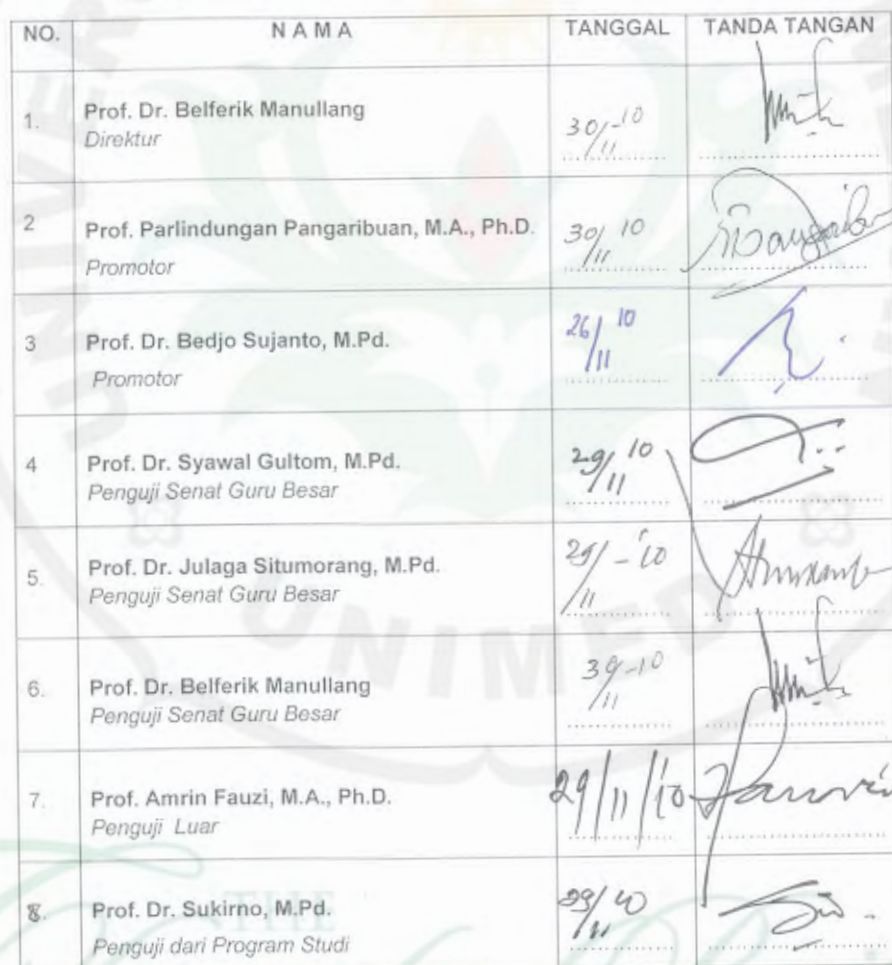 NO. N A M A TANGGAL TANDA TANGAN
1. Prof. Dr. Belferik Manullang
Direktur
30/11-10
2 Prof. Parlindungan Pangaribuan, M.A., Ph.D.
Promotor
30/11 10
3 Prof. Dr. Bedjo Sujanto, M.Pd.
Promotor
26/11 10
4 Prof. Dr. Syawal Gultom, M.Pd.
Penguji Senat Guru Besar
29/11 10
5. Prof. Dr. Julaga Situmorang, M.Pd.
Penguji Senat Guru Besar
29/11 - '10
6. Prof. Dr. Belferik Manullang
Penguji Senat Guru Besar
30/11-10
7. Prof. Amrin Fauzi, M.A., Ph.D.
Penguji Luar
29/11/'10
8. Prof. Dr. Sukirno, M.Pd.
Penguji dari Program Studi
29/11 10
UNIMED
THE